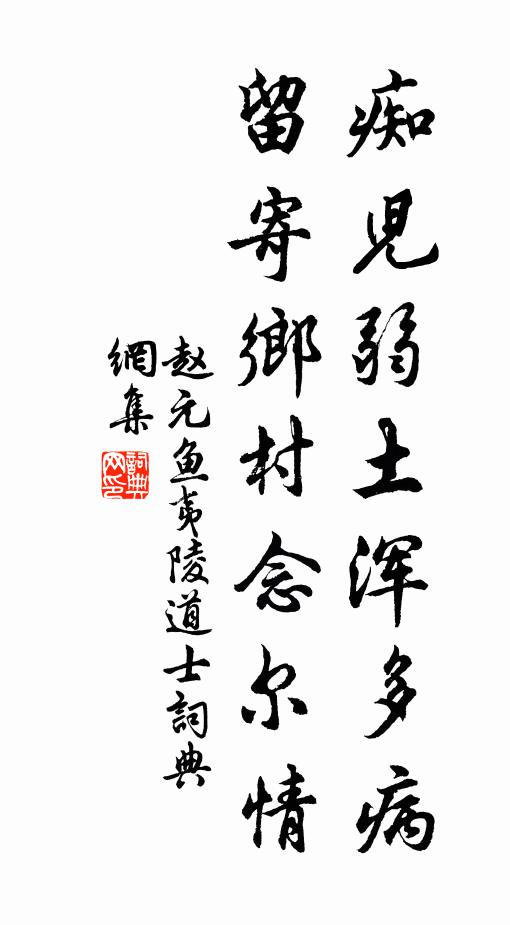 痴児弱土浑多病
留寄鄉村念尔情
赵元鱼夷陵道士詞典
網集
詞典網印